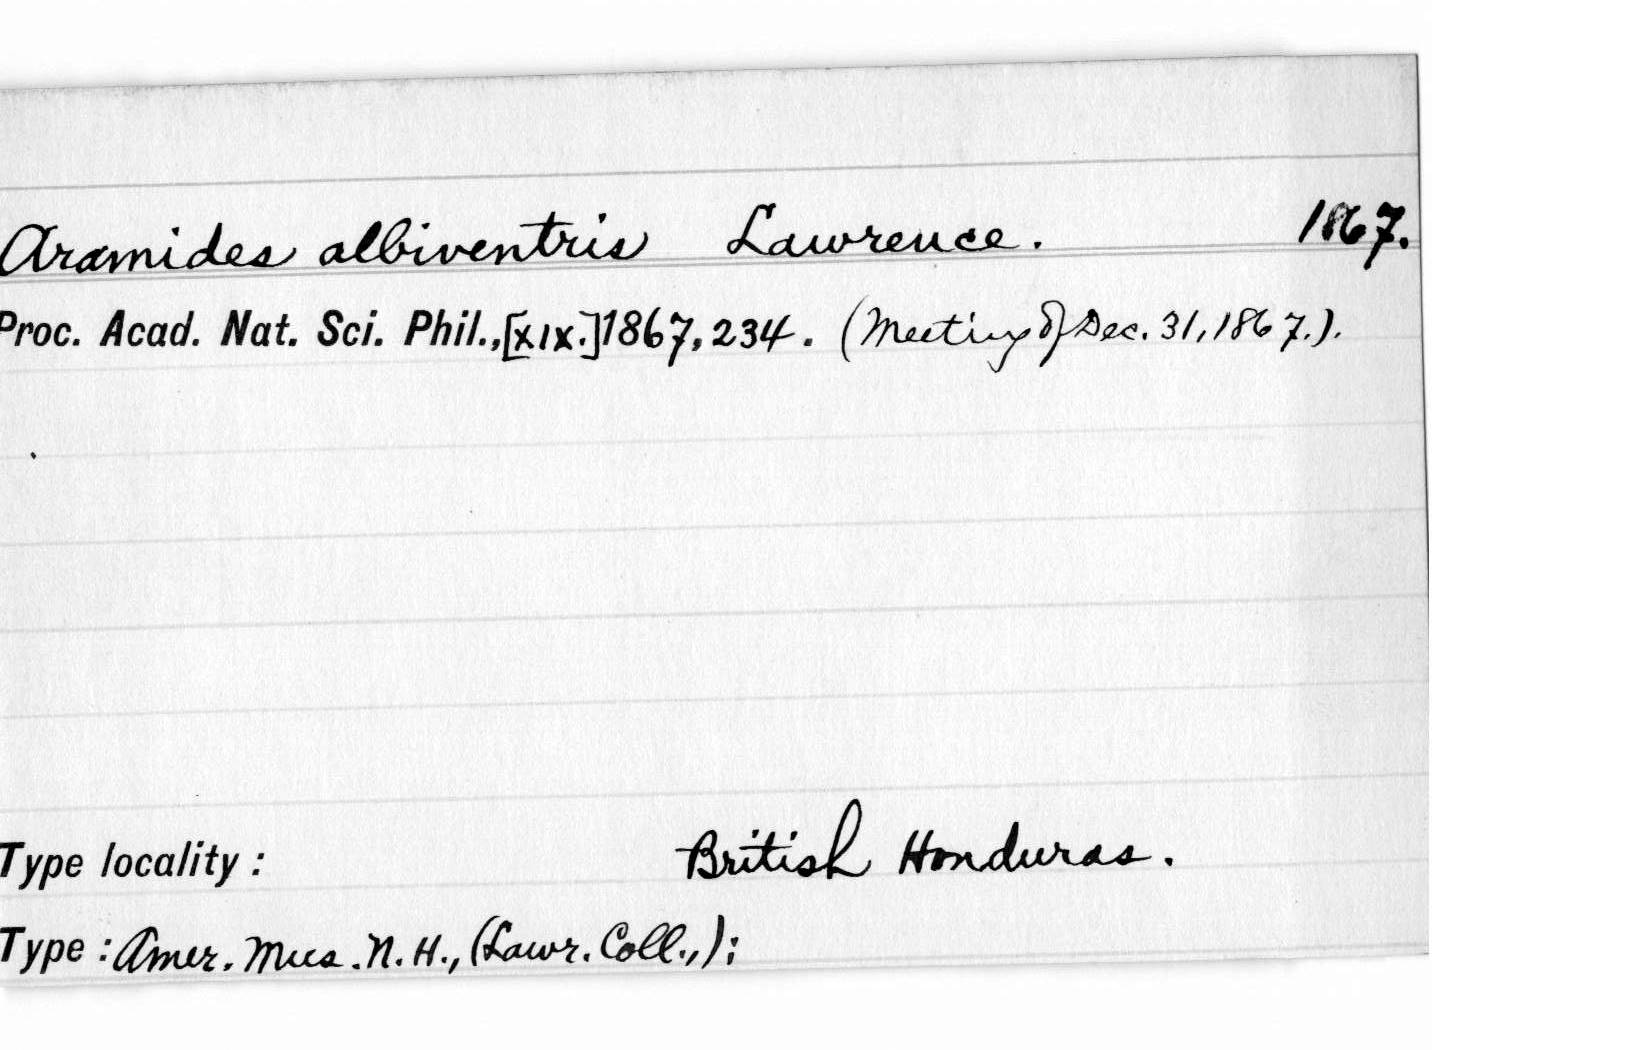 Aramides albiventris Lawrence. 1867.
Proc. Acad. Nat. Sci. Phil., [XIX.] 1867, 234. (Meeting of Dec. 31, 1867.).
Type locality : British Honduras.
Type : Amer. Mus. N. H., (Lawr. Coll.,);